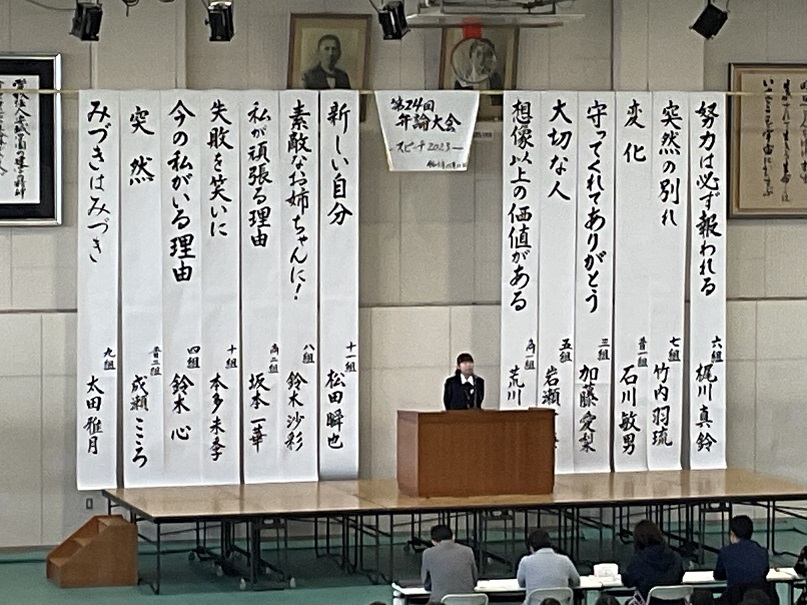 第24回
年論大会
-スピーチ2023-
努力は必ず報われる
六組 梶川真鈴
突然の別れ
七組 竹内羽琉
変化
普一組 石川敏男
守ってくれてありがとう
三組 加藤愛梨
大切な人
五組 岩瀬
想像以上の価値がある
商一組 荒川
新しい自分
十一組 松田瞬也
素敵なお姉ちゃんに!
八組 鈴木沙彩
私が頑張る理由
商二組 坂本一華
失敗を笑いに
十組 本多未季
今の私がいる理由
四組 鈴木心
突然
普二組 成瀬こころ
みづきはみづき
九組 太田雅月